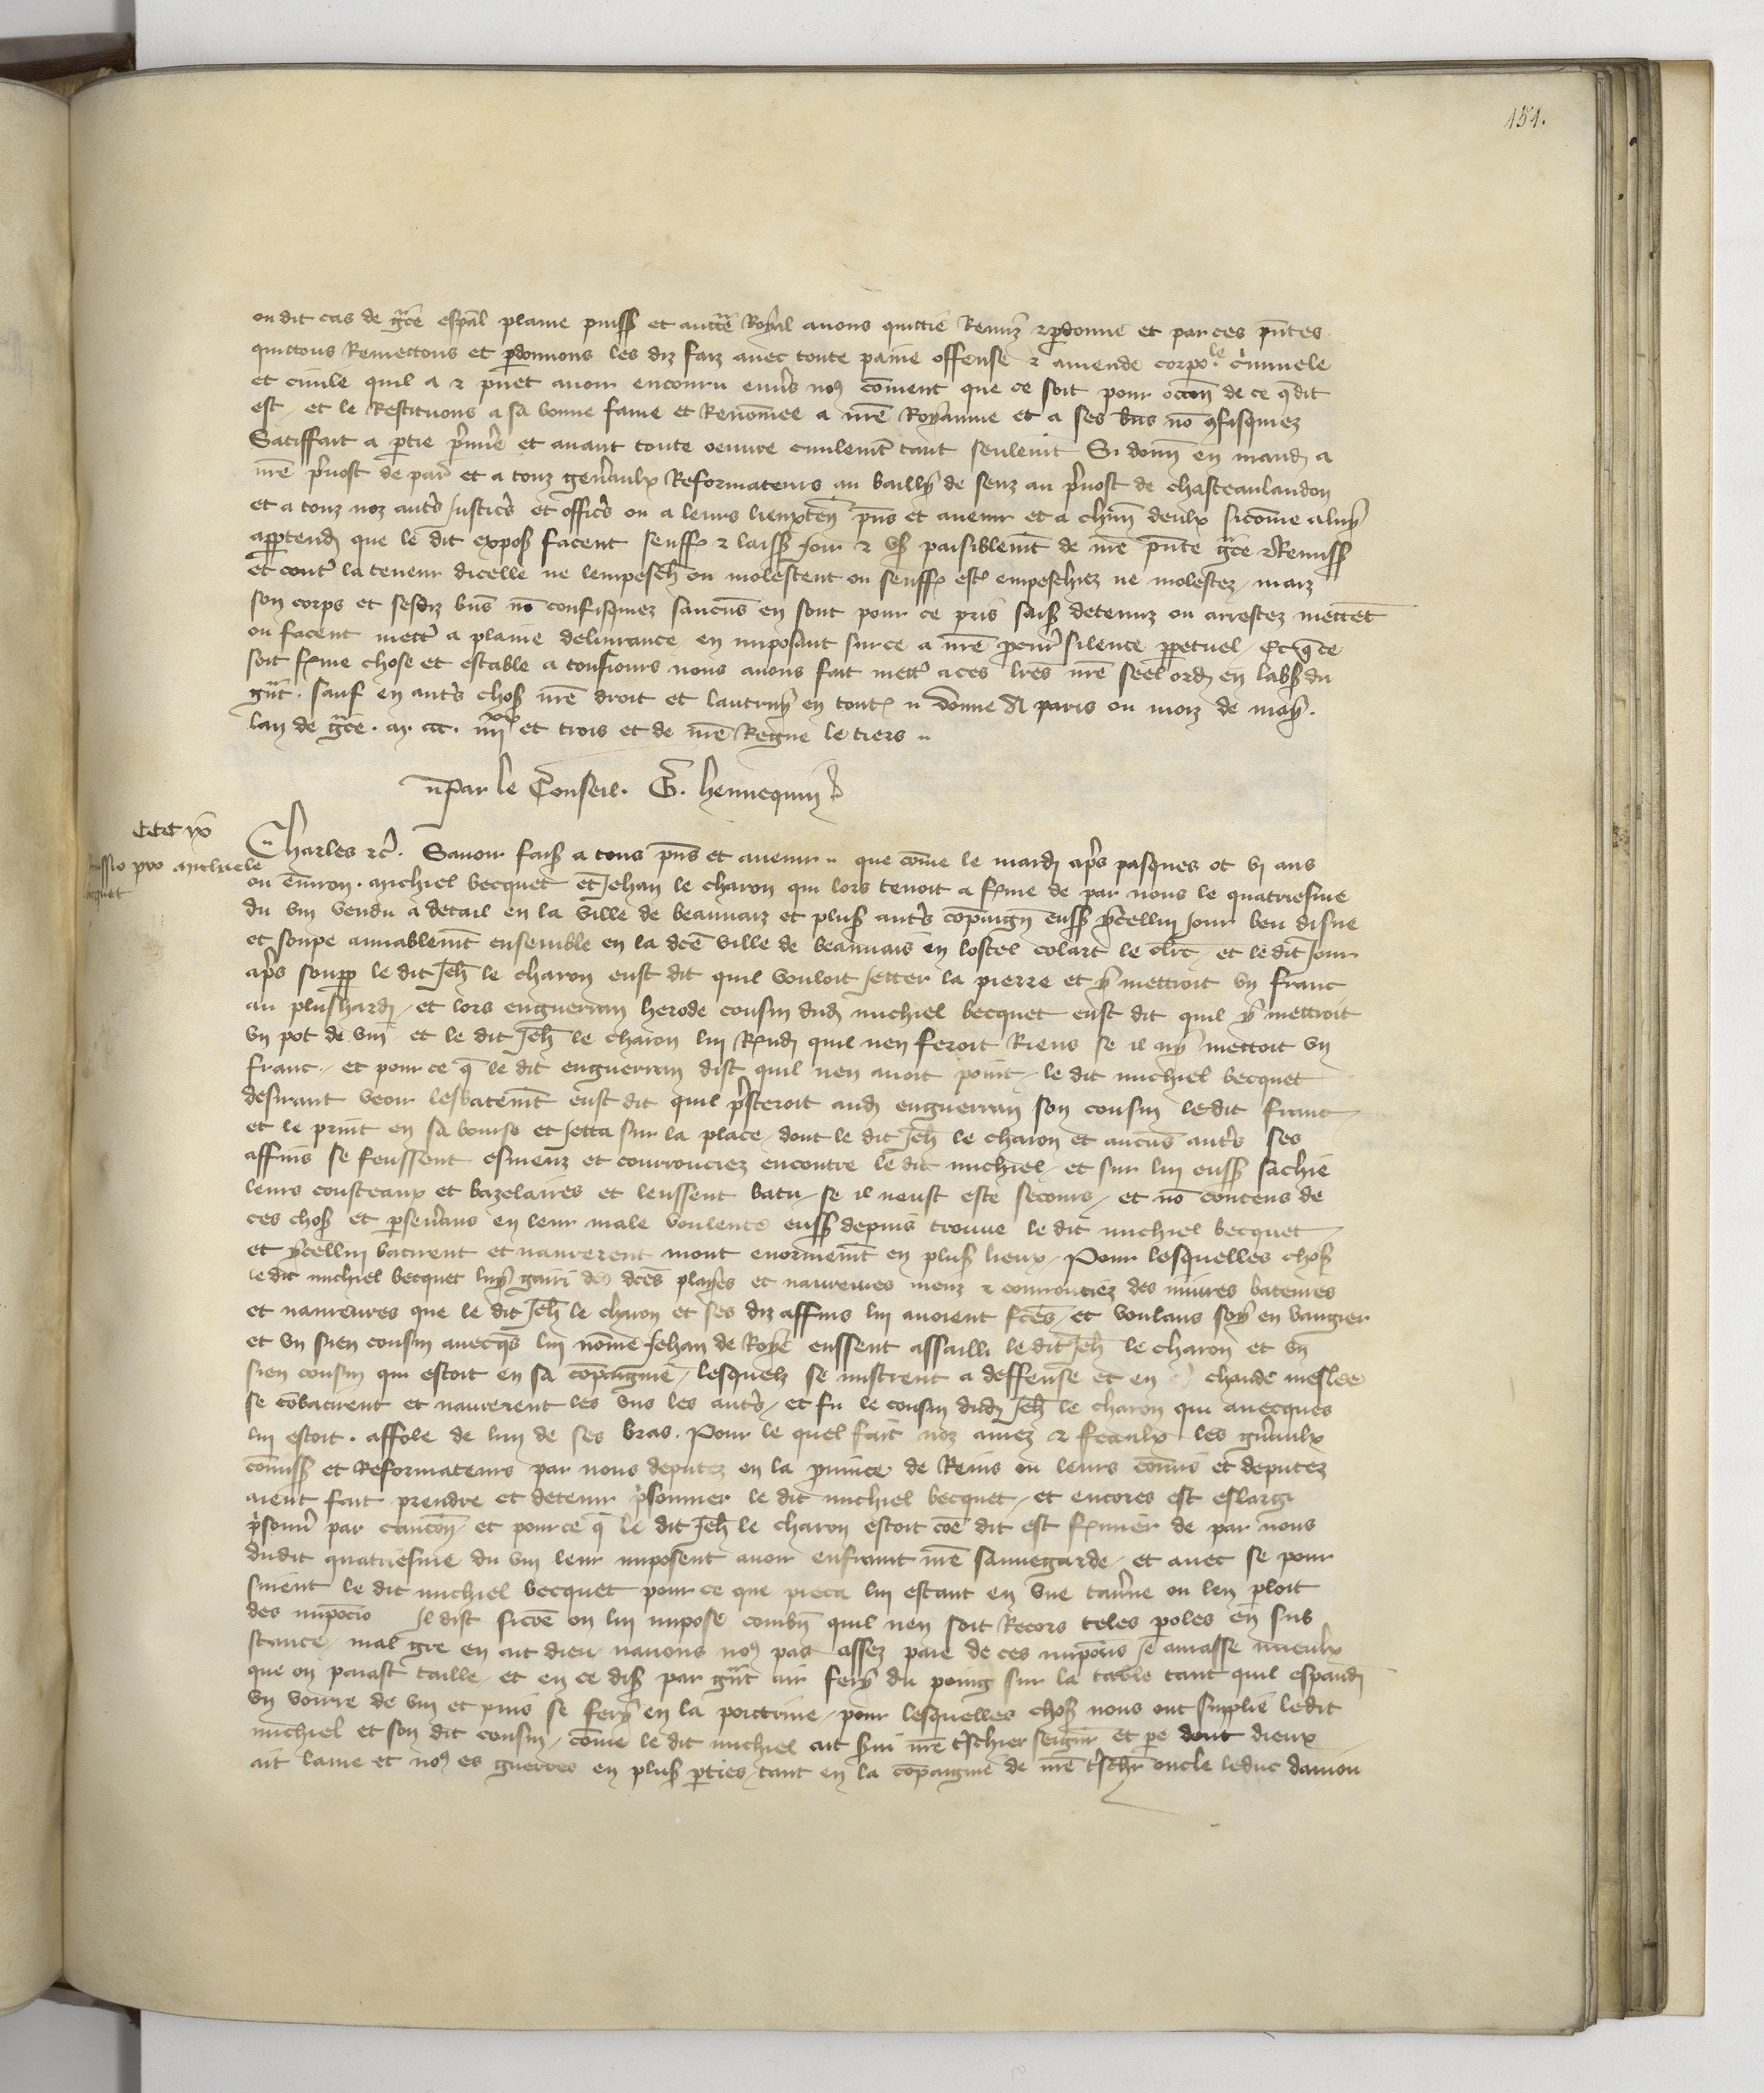 151.
ou dit cas de gr̃ce esp̃al plaine puiss et auctẽ Royal auons quittie Remiz et p̱donne et par ces pñtes
quittons Remettons et p̱donnons les diz faiz auec toute paine offense et amende corpo.le cͥminele
et ciuile quil a et puet auoir encouru enuͬs noꝯ cõment que ce soit pour ocoõn de ce q̃ dit
est / et le Restituons a sa bonne fame et Renõmee a nr̃e Royaume et a ses biñs nõ ꝯfisquiez
Satiffait a p̱tie pͬmieͬ et auant toute oeuure ciuilem̃t tant seulem̃t Si donñ en mand̃ a
nr̃e pͬuost de par̃ et a touz gen̾aulx Reformateurs au bailly de senz au pͬuost de chasteaulandon
et a touz noz autͬs Justicͬs et officͬs ou a leurs lieuxteñ pñs et auenir et a chũn deulx sicõme a luy
app̱tend̃ que le dit expoß facent seuff̾ et laiss Joir et vß paisiblem̃t de nr̃e pñte gr̃ce et Remiss
et contͬ la teneur dicelle ne lempesch̃ ou molestent ou seuff̾ estͬ empeschiez ne molestez / maiz
son corps et sesdiz biñs nõ confisquiez saucũs en sont pour ce pris saiß detenuz ou arrestez mettẽt
ou facent mettͬ a plaine deliurance en imposant sur ce a nr̃e p̱curͬ silence pp̱etuel / Et q̃ ce
soit f̾me chose et estable a tousiours nous auons fait mettͬ a ces lr̃es nr̃e seel ord̃ en labß du
gr̃t . sauf en autͬs choß nr̃e droit et lautruy en toutͬ Donne A paris ou moiz de may .
lan de gr̃ce . m . ccc . iiijxx et trois et de nr̃e Regne le tiers
Par le Conseil . G. hennequin
CCCC ix
missio pro michaele
becquet
Charles etc̃ . Sauoir faiß a tous pñs et auenir que cõme le mard̃ apͬs pasques ot vj ans
ou enuiron . michiel becquet et Jehan le charon qui lors tenoit a f̾me de par nous le quatriesme
du vin vendu a detail en la ville de beauuaiz et pluß autͬs cõpaigñ euss ycellui Jour beu disne
et soupe amiablem̃t ensemble en la dc̃e ville de beauuais en lostel colart le clͬc / et le dit Jour
apͬs soupp̱ le dit Jeh̃ le charon eust dit quil vouloit Jetter la pierre et y mettroit vn franc
au plushard̃ / et lors enguerran herode cousin dud̃ michiel becquet eust dit quil y mettroit
vn pot de vin / et le dit Jeh̃ le charon lui R̾nd̃ quil nen feroit Riens se il ny mettoit vn
franc / et pour ce q̃ le dit enguerran dist quil nen auoit point / le dit michiel becquet
desirant veoir lesbatem̃t eust dit quil pͬsteroit aud̃ enguerran son cousin ledit franc
et le print en sa bourse et Jetta sur la place / dont le dit Jeh̃ le charon et aucũs autͬs ses
affins se feussent esmeuz et courrouciez encontre le dit michiel / et sur lui euss sachie
leurs cousteaux et bazelaires et leussent batu / se il neust este secours / et nõ contens de
ces choß et p̱seu̾ans en leur male voulente euss depuis trouue le dit michiel becquet
et ycellui batirent et naurerent mout enormem̃t en pluß lieux / Pour lesquelles choß
le dit michiel becquet luy gairi des dc̃es playes et naureures meuz et courrouciez des iniures bateures
et naureures que le dit Jeh̃ le charon et ses diz affins lui auoient fc̃es / et voulans soy en vangier
et vn sien cousin auecq̃s lui nõme Jehan de Roye eussent assailli le dit Jeh̃ le charon et vn
sien cousin qui estoit en sa cõpaignie / lesquelz se mistrent a deffense et en chaude meslee
se cõbatirent et naurerent les vns les autͬs / et fu le cousin dud̃ Jeh̃ le charon qui auecques
lui estoit . affole de lun de ses bras . Pour le quel fait noz amez et feaulx les gn̾aulx
cõmiss et Reformateurs par nous deputez en la prouince de Reins ou leurs cõmis et deputez
aient fait prendre et detenir pͥsonnier le dit michiel becquet / et encores est eslargi
pͥsonnͬ par caucõn / et pource q̃ le dit Jeh̃ le charon estoit cõe dit est f̾mier de par nous
dudit quatriesme du vin leur imposent auoir enfraint nr̃e sauuegarde / et auec se pour
suient le dit michiel becquet pour ce que pieca lui estant en vne tau̾ne ou len p̱loit
des imp̃ocio Il dist sicõe on lui impose combiñ quil nen soit Recors teles p̱oles en sub
stance / mal gre en ait dieu nauons noꝯ pas assez paie de ces imp̃oins Je amasse mieulx
que on paiast taille / et en ce diß par gr̃t air fery du poing sur la table tant quil espandi
vn voirre de vin et puis se fery en la poictrine / pour lesquelles choß nous ont supplie ledit
michiel et son dit cousin / cõme le dit michiel ait s̾ui nr̃e tͬschier seignͬ et p̱e dont dieux
ait lame et noꝯ es guerres en pluß p̱ties / tant en la cõpaignie de nr̃e tͬschͬ oncle leduc daniou